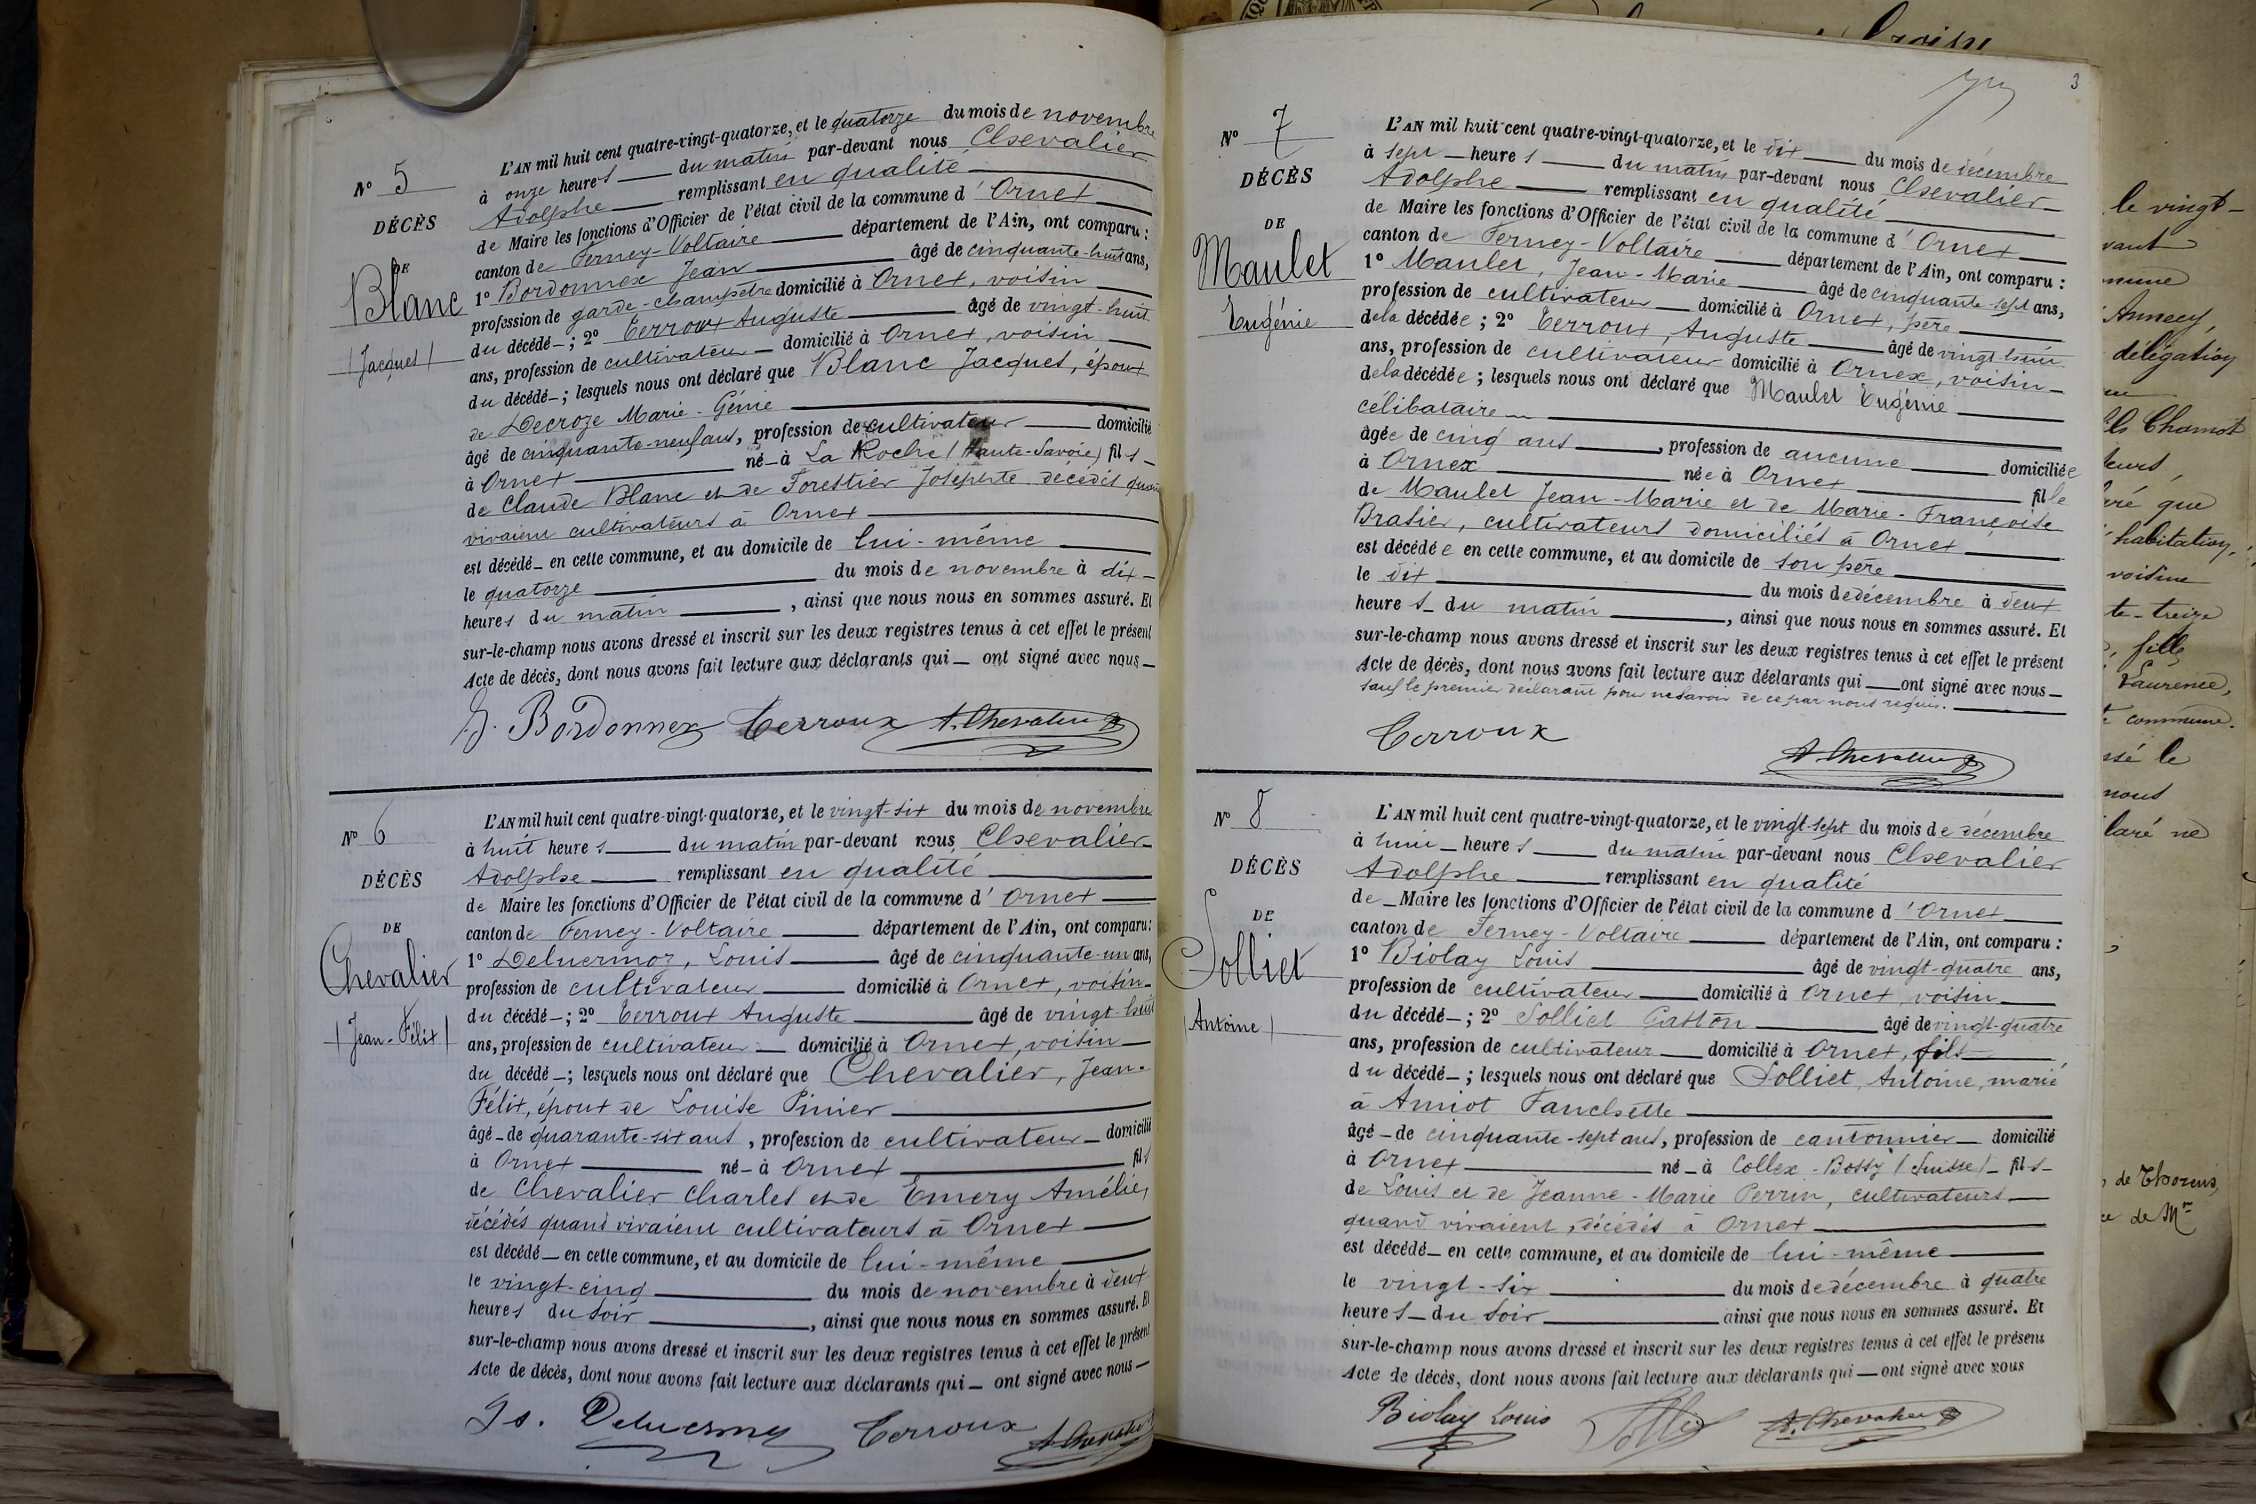 N° 5
DÉCÈS
DE
Blanc
(Jacques)
L'AN mil huit cent quatre-vingt-quatorze, et le quatorze du mois de novembre
à onze heures du matin par-devant nous Chevalier
Adolphe remplissant en qualité
de Maire les fonctions d'Officier de l'état civil de la commune d'Ornex
canton de Ferney-Voltaire département de l'Ain, ont comparu :
1° Bordonnex Jean âgé de cinquante-huit ans,
profession de garde-champêtre domicilié à Ornex, voisin
du décédé ; 2° Terroux Auguste âgé de vingt-huit
ans, profession de cultivateur domicilié à Ornex, voisin
du décédé ; lesquels nous ont déclaré que Blanc Jacques, époux
de Decroze Marie-Génie
âgé de cinquante-neuf ans, profession de cultivateur domicilié
à Ornex né à La Roche (Haute-Savoie) fils
de Claude Blanc et de Forestier Josephte décédés quand
vivaient cultivateurs à Ornex
est décédé en cette commune, et au domicile de lui-même
le quatorze du mois de novembre à dix
heures du matin, ainsi que nous nous en sommes assuré. Et
sur-le-champ nous avons dressé et inscrit sur les deux registres tenus à cet effet le présent
Acte de décès, dont nous avons fait lecture aux déclarants qui ont signé avec nous
J. Bordonnex Terroux A. Chevalier
N° 6
DÉCÈS
DE
Chevalier
(Jean-Félix)
L'AN mil huit cent quatre-vingt-quatorze, et le vingt-six du mois de novembre
à huit heures du matin par-devant nous Chevalier
Adolphe remplissant en qualité
de Maire les fonctions d'Officier de l'état civil de la commune d'Ornex
canton de Ferney-Voltaire département de l'Ain, ont comparu :
1° Deluermoz, Louis âgé de cinquante-un ans,
profession de cultivateur domicilié à Ornex, voisin
du décédé ; 2° Terroux Auguste âgé de vingt-huit
ans, profession de cultivateur domicilié à Ornex, voisin
du décédé ; lesquels nous ont déclaré que Chevalier, Jean-
Félix, époux de Louise Pinier
âgé de quarante-six ans, profession de cultivateur domicilié
à Ornex né à Ornex fils
de Chevalier Charles et de Emery Amélie,
décédés quand vivaient cultivateurs à Ornex
est décédé en cette commune, et au domicile de lui-même
le vingt-cinq du mois de novembre à deux
heures du soir, ainsi que nous nous en sommes assuré. Et
sur-le-champ nous avons dressé et inscrit sur les deux registres tenus à cet effet le présent
Acte de décès, dont nous avons fait lecture aux déclarants qui ont signé avec nous
Deluermoz Terroux A. Chevalier
3
N° 7
DÉCÈS
DE
Maulet
Eugénie
L'AN mil huit cent quatre-vingt-quatorze, et le dix du mois de décembre
à sept heures du matin par-devant nous Chevalier
Adolphe remplissant en qualité
de Maire les fonctions d'Officier de l'état civil de la commune d'Ornex
canton de Ferney-Voltaire département de l'Ain, ont comparu :
1° Maulet, Jean-Marie âgé de cinquante-sept ans,
profession de cultivateur domicilié à Ornex, père
de la décédée ; 2° Terroux, Auguste âgé de vingt-huit
ans, profession de cultivateur domicilié à Ornex, voisin
de la décédée ; lesquels nous ont déclaré que Maulet Eugénie
célibataire
âgée de cinq ans, profession de aucune domiciliée
à Ornex née à Ornex fille
de Maulet Jean-Marie et de Marie-Françoise
Brasier, cultivateurs domiciliés à Ornex
est décédée en cette commune, et au domicile de son père
le dix du mois de décembre à deux
heures du matin, ainsi que nous nous en sommes assuré. Et
sur-le-champ nous avons dressé et inscrit sur les deux registres tenus à cet effet le présent
Acte de décès, dont nous avons fait lecture aux déclarants qui ont signé avec nous
sauf le premier déclarant pour ne savoir de ce par nous requis.
Terroux
A. Chevalier
N° 8
DÉCÈS
DE
Solliet
(Antoine)
L'AN mil huit cent quatre-vingt-quatorze, et le vingt-sept du mois de décembre
à huit heures du matin par-devant nous Chevalier
Adolphe remplissant en qualité
de Maire les fonctions d'Officier de l'état civil de la commune d'Ornex
canton de Ferney-Voltaire département de l'Ain, ont comparu :
1° Biolay Louis âgé de vingt-quatre ans,
profession de cultivateur domicilié à Ornex voisin
du décédé ; 2° Solliet Gaston âgé de vingt-quatre
ans, profession de cultivateur domicilié à Ornex, fils
du décédé ; lesquels nous ont déclaré que Solliet, Antoine, marié
à Amiot Fanchette
âgé de cinquante-sept ans, profession de cantonnier domicilié
à Ornex né à Collex-Bossy (Suisse) fils
de Louis et de Jeanne-Marie Perrin, cultivateurs
quand vivaient, décédés à Ornex
est décédé en cette commune, et au domicile de lui-même
le vingt-six du mois de décembre à quatre
heures du soir ainsi que nous nous en sommes assuré. Et
sur-le-champ nous avons dressé et inscrit sur les deux registres tenus à cet effet le présent
Acte de décès, dont nous avons fait lecture aux déclarants qui ont signé avec nous
Biolay Louis Solliet A. Chevalier
le vingt-
Annecy,
délégation
Chamot
que
habitation,
voisine
te-treize
fille
Laurence,
commune.
sé le
nous
laré ne
de Thorens,
de Mr